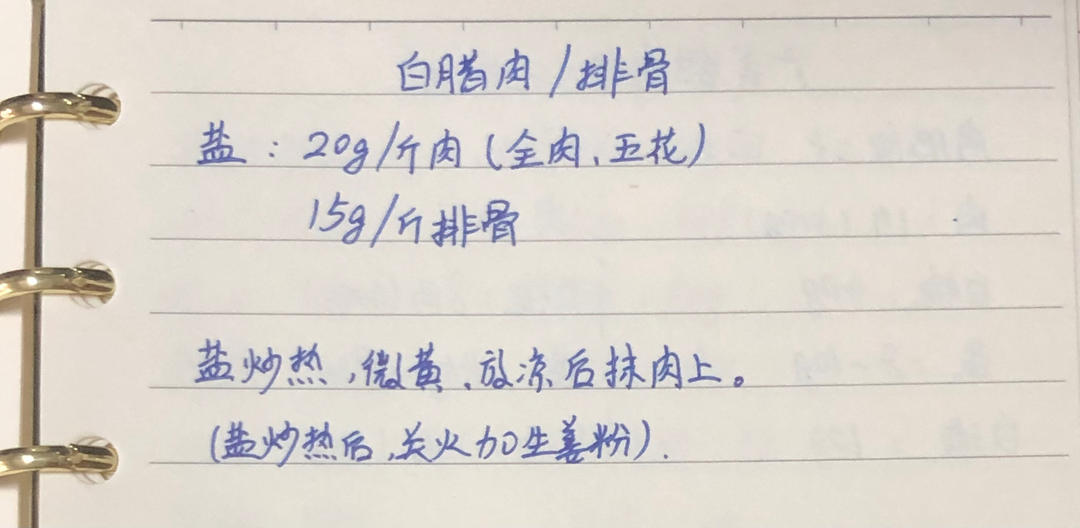 白腊肉/排骨
盐：20g/斤肉（全肉、五花）
15g/斤排骨
盐炒热，微黄、放凉后抹肉上。
（盐炒热后，关火加生姜粉）.